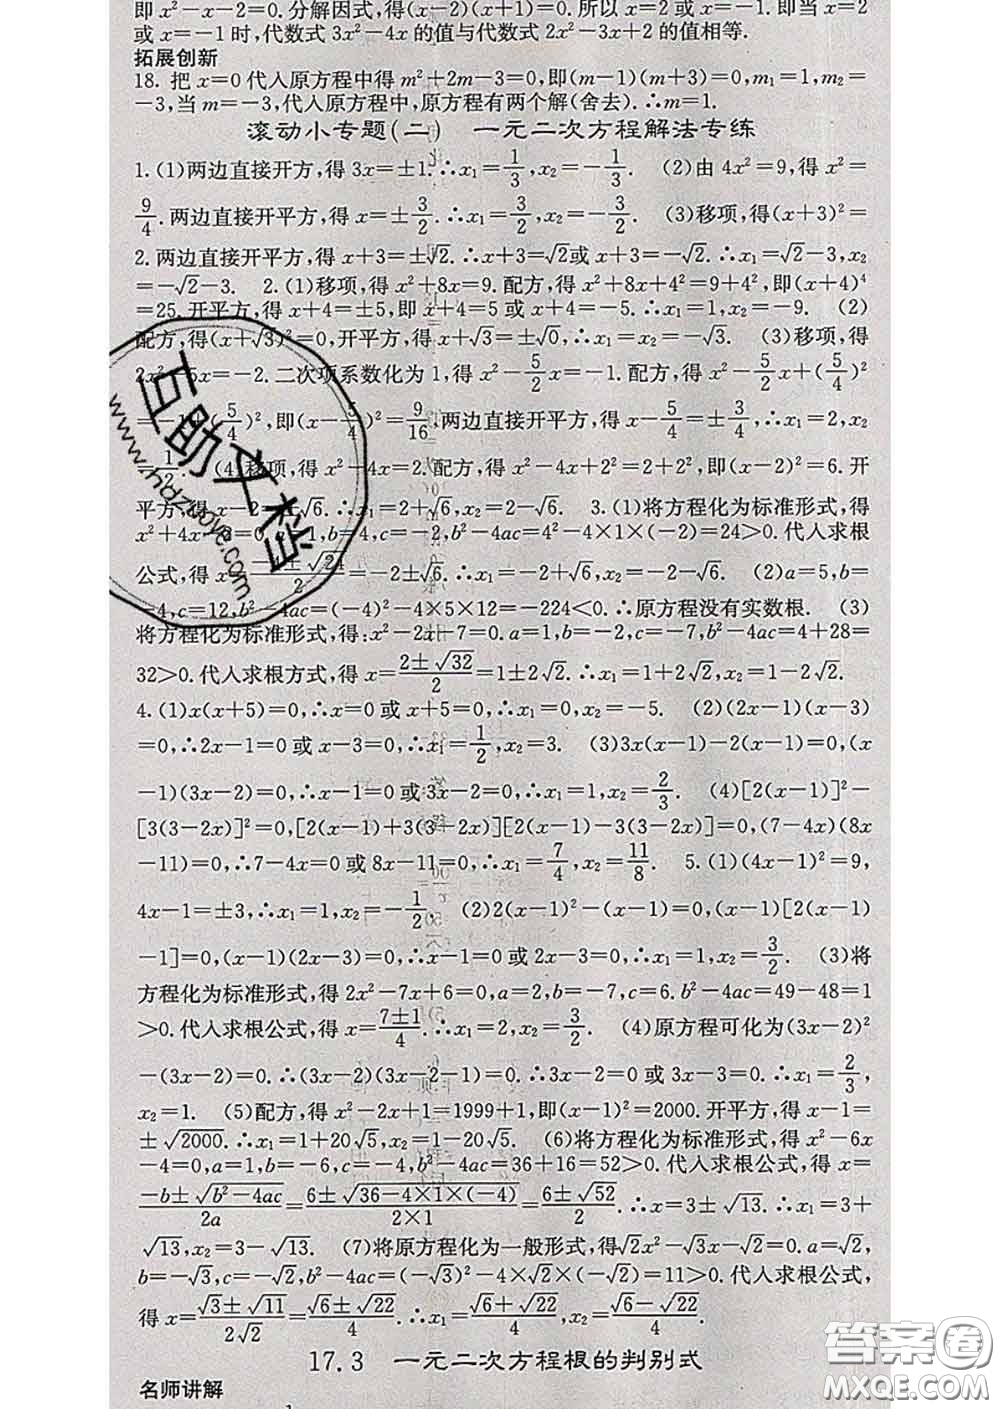 即 x²-x-2=0. 分解因式,得(x-2)(x+1)=0. 所以 x=2 或 x=-1. 即当 x=2
或 x=-1 时,代数式 3x²-4x 的值与代数式 2x²-3x+2 的值相等.
拓展创新
18. 把 x=0 代入原方程中得 m²+2m-3=0,即(m-1)(m+3)=0,m₁=1,m₂=
-3,当 m=-3,代入原方程中,原方程有两个解(舍去). ∴m=1.
滚动小专题(二) 一元二次方程解法专练
1. (1)两边直接开方,得 3x=±1. ∴x₁=1/3,x₂=-1/3. (2)由 4x²=9,得 x²=
9/4. 两边直接开平方,得 x=±3/2. ∴x₁=3/2,x₂=-3/2. (3)移项,得(x+3)²=
2. 两边直接开平方,得 x+3=±√2. ∴x+3=√2或 x+3=-√2. ∴x₁=√2-3,x₂
=-√2-3. 2. (1)移项,得 x²+8x=9. 配方,得 x²+8x+4²=9+4²,即(x+4)⁴
=25. 开平方,得 x+4=±5,即 x+4=5 或 x+4=-5. ∴x₁=1,x₂=-9. (2)
配方,得(x+√3)²=0,开平方,得 x+√3=±√0,∴x₁=x₂=-√3. (3)移项,得
2x²-5x=-2. 二次项系数化为 1,得 x²-5/2x=-1. 配方,得 x²-5/2x+(5/4)²
(5/4)²,即(x-5/4)²=9/16. 两边直接开平方,得 x-5/4=±3/4,∴x₁=2,x₂
=1/2. (4)移项,得 x²-4x=2. 配方,得 x²-4x+2²=2+2²,即(x-2)²=6. 开
平方,得 x-2=±√6. ∴x₁=2+√6,x₂=2-√6. 3. (1)将方程化为标准形式,得
x²+4x-2=0,a=1,b=4,c=-2,b²-4ac=4²-4×1×(-2)=24>0. 代入求根
公式,得 x=-4±√24/2=-2±√6. ∴x₁=-2+√6,x₂=-2-√6. (2)a=5,b=
-4,c=12,b²-4ac=(-4)²-4×5×12=-224<0. ∴原方程没有实数根. (3)
将方程化为标准形式,得:x²-2x-7=0. a=1,b=-2,c=-7,b²-4ac=4+28=
32>0. 代入求根方式,得 x=2±√32/2=1±2√2. ∴x₁=1+2√2,x₂=1-2√2.
4. (1)x(x+5)=0,∴x=0 或 x+5=0,∴x₁=0,x₂=-5. (2)(2x-1)(x-3)
=0,∴2x-1=0 或 x-3=0,∴x₁=1/2,x₂=3. (3)3x(x-1)-2(x-1)=0,(x
-1)(3x-2)=0,∴x-1=0 或 3x-2=0,∴x₁=1,x₂=2/3. (4)[2(x-1)]²-
[3(3-2x)]²=0,[2(x-1)+3(3-2x)][2(x-1)-3(3-2x)]=0,(7-4x)(8x
-11)=0,∴7-4x=0 或 8x-11=0,∴x₁=7/4,x₂=11/8. 5. (1)(4x-1)²=9,
4x-1=±3,∴x₁=1,x₂=-1/2. (2)2(x-1)²-(x-1)=0,(x-1)[2(x-1)
-1]=0,(x-1)(2x-3)=0,∴x-1=0 或 2x-3=0,∴x₁=1,x₂=3/2. (3)将
方程化为标准形式,得 2x²-7x+6=0,a=2,b=-7,c=6. b²-4ac=49-48=1
>0. 代入求根公式,得 x=7±1/4. ∴x₁=2,x₂=3/2. (4)原方程可化为(3x-2)²
-(3x-2)=0. ∴(3x-2)(3x-2-1)=0. ∴3x-2=0 或 3x-3=0. ∴x₁=2/3,
x₂=1. (5)配方,得 x²-2x+1=1999+1,即(x-1)²=2000. 开平方,得 x-1=
±√2000. ∴x₁=1+20√5,x₂=1-20√5. (6)将方程化为标准形式,得 x²-6x
-4=0,a=1,b=-6,c=-4,b²-4ac=36+16=52>0. 代入求根公式,得 x=
-b±√b²-4ac/2a=6±√36-4×1×(-4)/2×1=6±√52/2. ∴x=3±√13. ∴x₁=3+
√13,x₂=3-√13. (7)将原方程化为一般形式,得√2x²-√3x-√2=0. a=√2,
b=-√3,c=-√2,b²-4ac=(-√3)²-4×√2×(-√2)=11>0. 代入求根公式,
得 x=√3±√11/2√2=√6±√22/4. ∴x₁=√6+√22/4,x₂=√6-√22/4.
17.3 一元二次方程根的判别式
名师讲解
互助文档
www.hdzuoye.com
答案圈
MXQE.COM